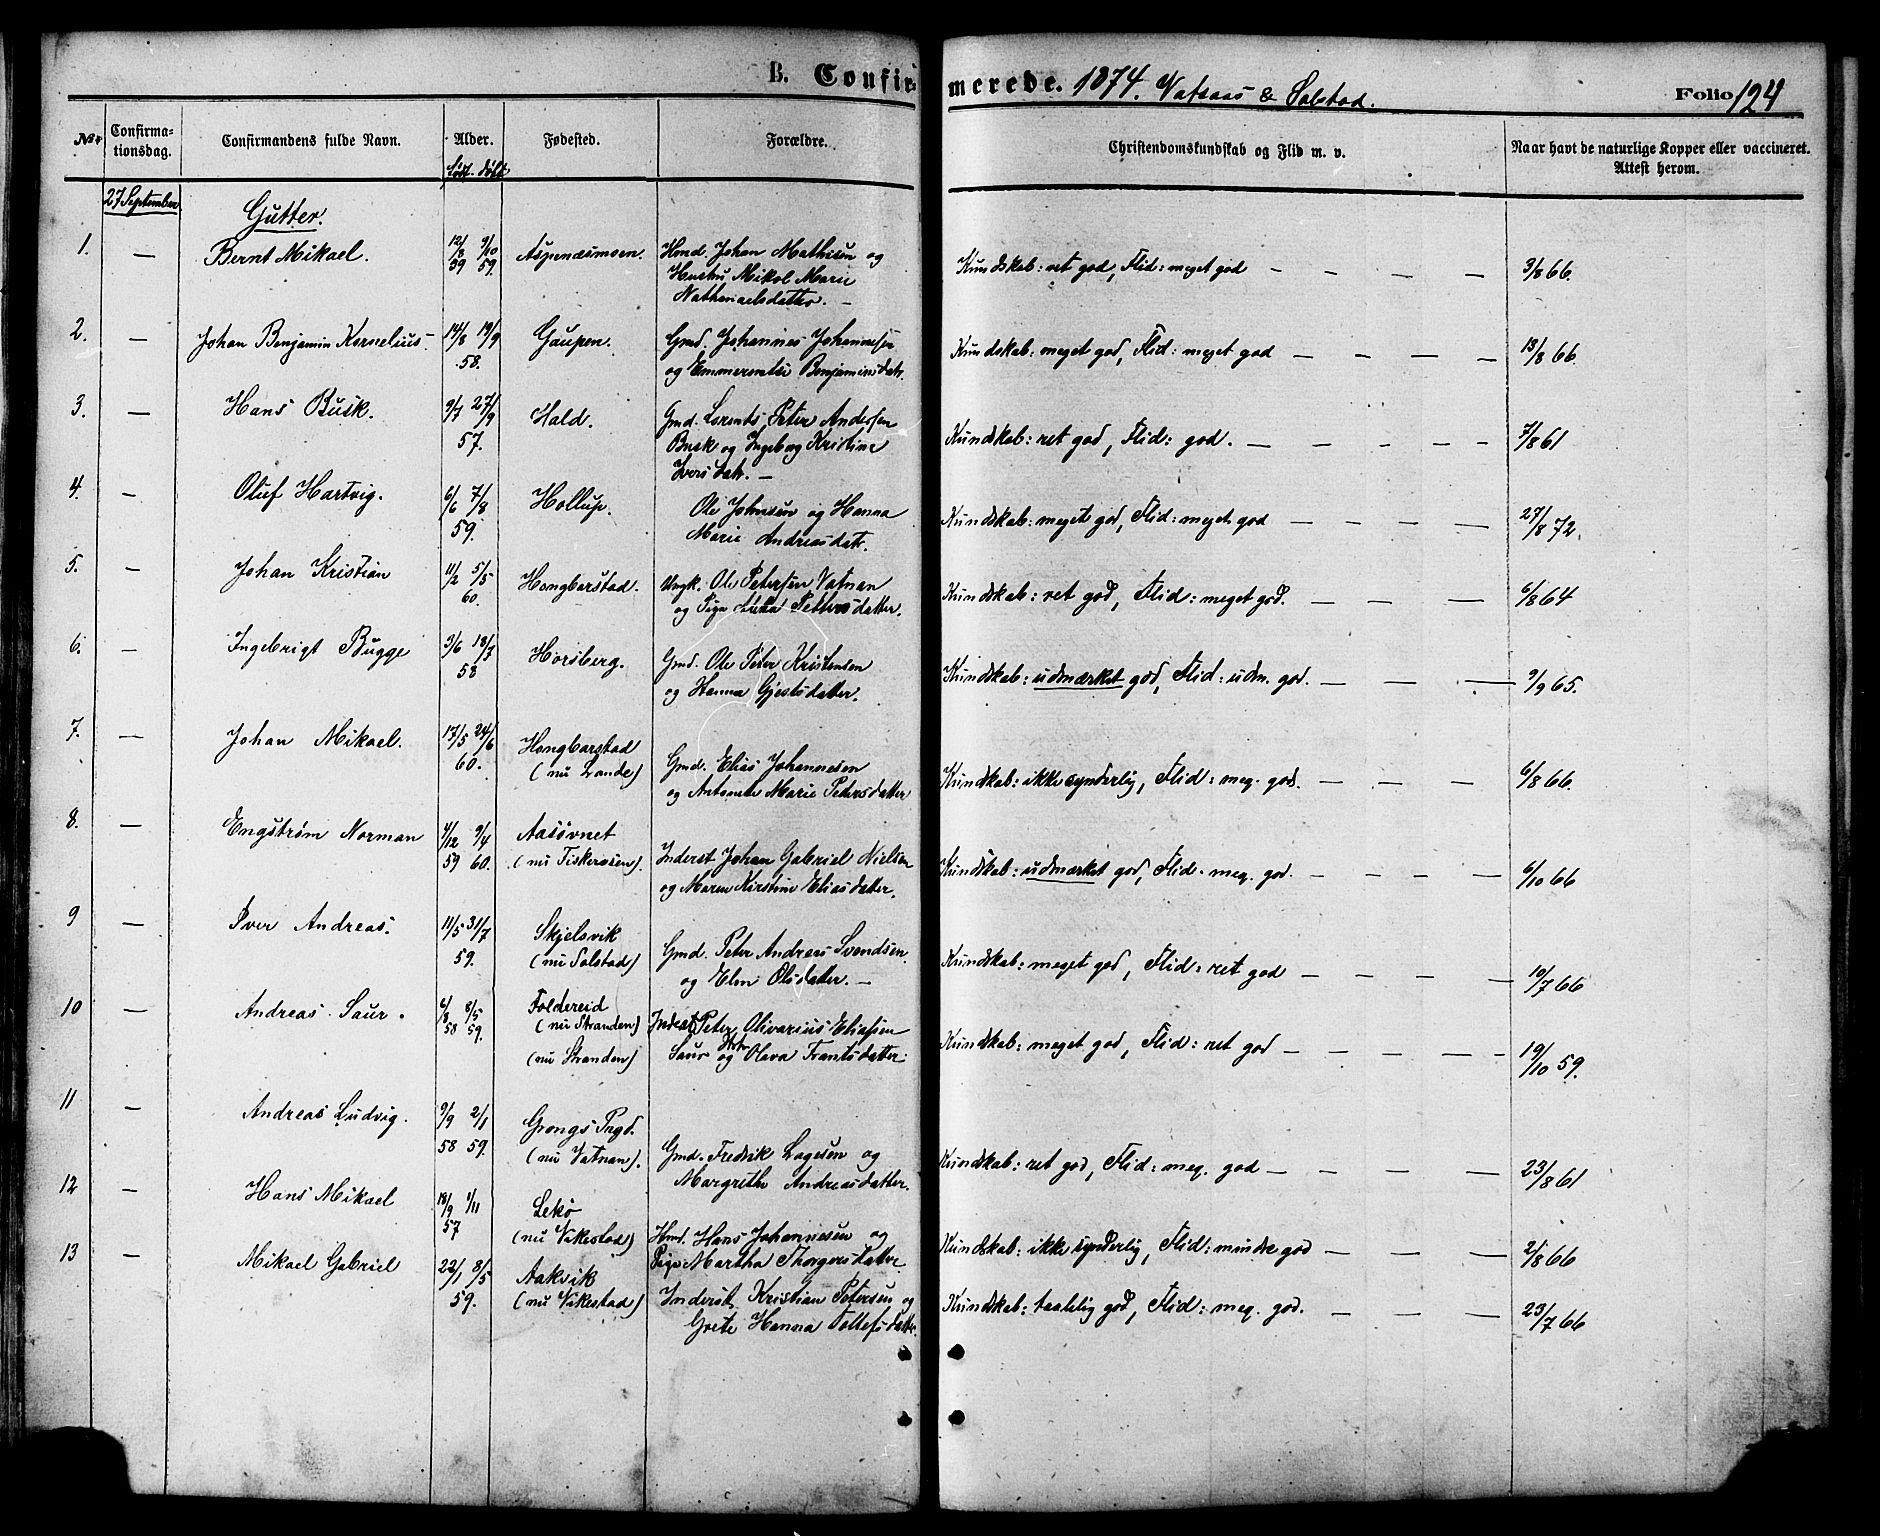 B. Confirmerede. 1874. Vatsaas & Solstad. Folio 124
No. Confirmationsdag. Confirmandens fulde Navn. Alder. Fødested. Forældre. Christendomskundskab og Flid m. v. Naar havt de naturlige Kopper eller vaccineret. Attest herom.
født. døbt
27 September Gutter.
1. — Bernt Mikael. 12/8 59 9/10 59. Aspenæsmoen. Hmd. Johan Mathisen og Kundskab: ret god, Flid: meget god — — — — 3/8 66.
Hustru Mikol Marie
Nathanaelsdatter. —
2. — Johan Benjamin Kornelius. 14/8 19/9 58. Gaupen. Gmd. Johannes Johannesen Kundskab: meget god, Flid: meget god — — — — 13/8 66.
og Emmerentse Benjaminsdatr.
3. — Hans Busk. 9/7 27/9 57. Hald. Gmd. Lorents Peter Andersen Kundskab: ret god, Flid: god. — — — — — 7/8 61
Busk og Ingeborg Kristine
Iversdatr. —
4. — Oluf Hartvig. 6/6 7/8 59. Hollup. Ole Johnsen og Hanna Kundskab: meget god, Flid: meget god — — — — 27/8 72.
Marie Andreasdatr.
5. — Johan Kristian 11/2 5/5 60. Hongbarstad. Ungk. Ole Petersen Vatnan Kundskab: ret god, Flid: meget god. — — — — 6/8 64
og Pige Pettersdatter.
6. — Ingebrigt Bugge 3/6 18/7 58 Horsberg. Gmd. Ole Peter Kristensen Kundskab: udmærket god, Flid: udm. god. — — — 9/9 65.
og Hanna Gjertsdatter.
7. — Johan Mikael. 17/5 24/6 60. Hongbarstad
(nu Lande) Gmd. Elias Johannesen Kundskab: ikke synderlig, Flid: meg. god. — — — — 6/8 66.
og Antonete Marie Petersdatter
8. — Engstrøm Norman 4/12 59 9/4 60. Aasøvnet
(nu Fiskerosen). Inderst Johan Gabriel Nielsen Kundskab: udmærket god, Flid. meg. god. — — — — 6/10 66
og Maren Kirstine Eliasdatter.
9 — Iver Andreas. 11/5 31/7 59. Skjelsvik
(nu Solstad) Gmd. Peter Andreas Svendsen. Kundskab: meget god, Flid: ret god — — — — 10/7 66
og Elen Olsdatter. —
10 — Andreas Saur. 6/8 58 8/5 59. Foldereid
(nu Stranden) Inderst Peter Olivarius Eliasen
(nu Stranden) Saur og Hstr Olava Frantsdatter. Kundskab: meget god, Flid: ret god — — — — 19/10 59.
11 — Andreas Ludvig. 9/9 58 2/1 59. Grongs Prgd.
(nu Vatnan). Gmd. Fredrik Lagesen og Kundskab: ret god, Flid: meg. god — — — — 23/8 61
Margrethe Andreasdatter.
12 — Hans Mikael 18/9 1/11 57 Lekø
(nu Vikestad) Hmd. Hans Johannesen og Kundskab: ikke synderlig, Flid: mindre god — — — 2/8 66
Pige Martha Thorgersdatter
13 — Mikael Gabriel 22/1 8/5 59. Aakvik
(nu Vikestad) Inderst, Kristian Petersen og Kundskab: taalelig god, Flid: meg. god. — — — — 23/7 66
Grete Hanna Tollefsdatter.